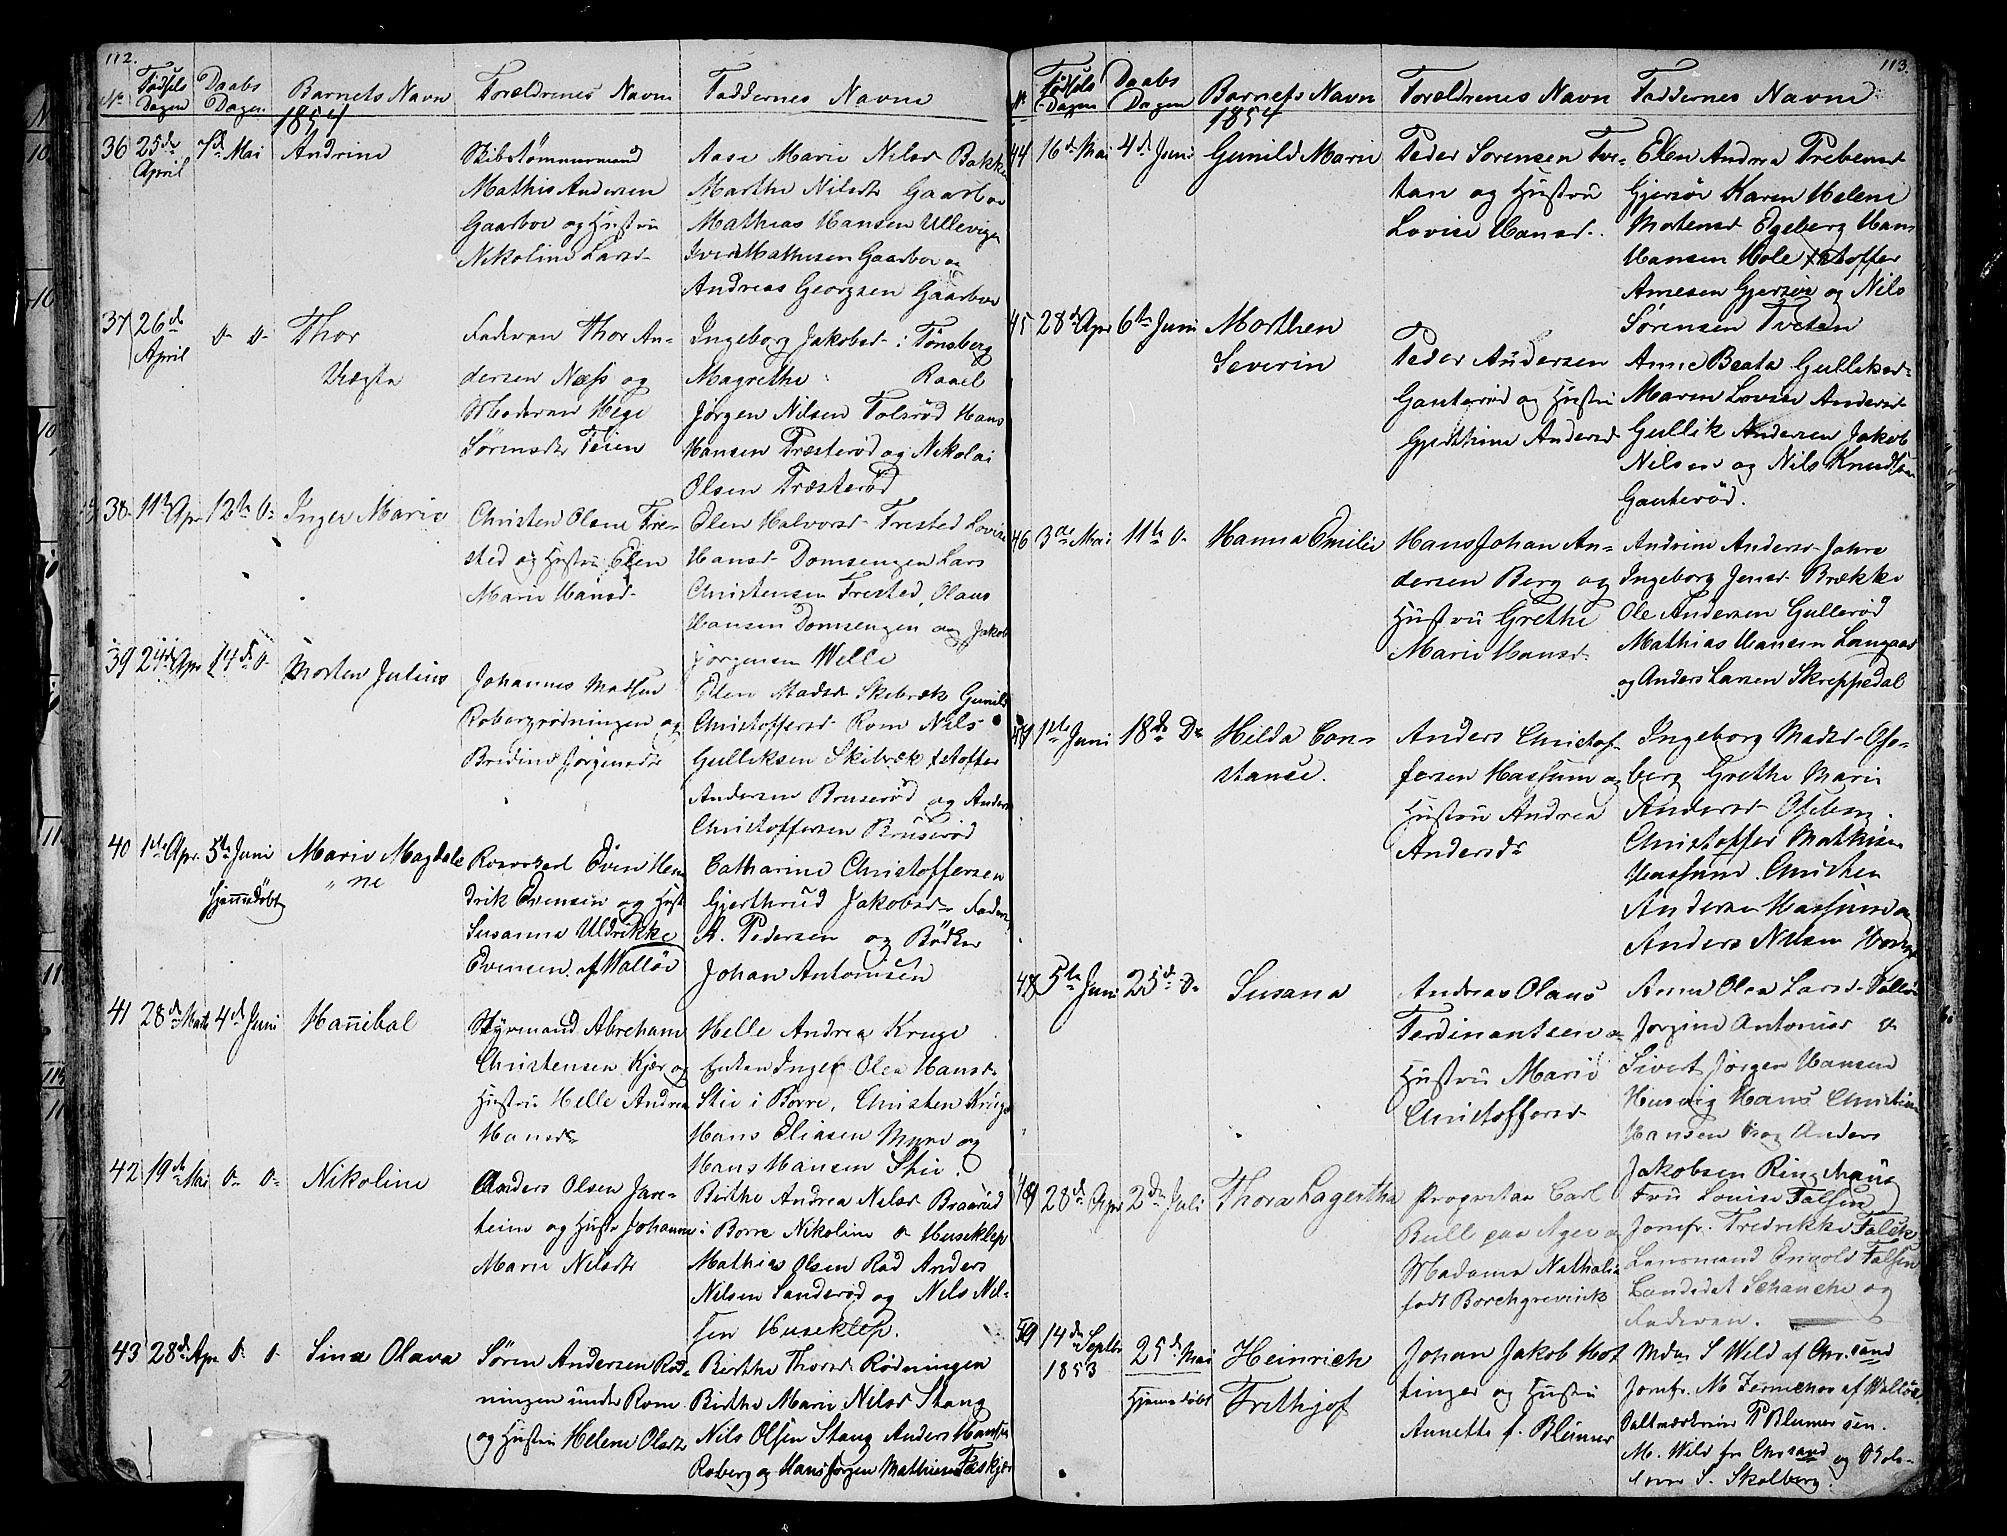 112.
No
Fødsels Dagen
Daabs Dagen
Barnets Navn
Forældrenes Navn
Faddernes Navne
1854
36 25de April 7de Mai Andrine
Skibstømmermand
Mathis Andersen
Gaarboe og Hustru
Nikoline Larsd-
Aase Marie Nilsd Bakke
Marthe Nilsdtr Gaarboe
Mathias Hansen Ullevigen
Iver Mathisen Gaarboe og
Andreas Georgsen Gaarboe
37 26de April D- D- Thor
Uægte
Faderen Thor An-
dersen Næss og
Moderen Hege
Sørensdtr Teien
Ingeborg Jakobsd- i Tønsberg
Magrethe Rael
Jørgen Nilsen Tolsrød Hans
Hansen Træsterød og Nikolai
Olsen Træsterød
38- 11te Apr 12te D- Inger Marie
Christen Olsen Fre-
sted og Hustru Elen
Marie Hansd-
Elen Halvorsd- Frested Lovise
Hansd- Domsengen Lars
Christensen Frested, Olaus
Hansen Domsengen og Jakob
Jørgensen Welle
39 24de Apr 14de D- Morten Julius
Johannes Madsen
Robergrødningen og
Bredine Jørgensdtr
Elen Madsd- Skibræk Gunild
Christoffersd- Rom Nils
Gulliksen Skibræk Kstoffer
Andersen Bruserød og Anders
Christoffersen Bruserød
40 1ste Apr 5te Juni Marie Magdale
Hjemmedøbt
" ne
Even Hen
drik Evensen og Hust
Susanna Uldrikke
Evensen af Walløe
Catharine Christoffersen
Gjerthrud Jakobsd- Faderen
A. Pedersen og Bødker
Johan Antonisen
41 28de Marts 4de Juni Hannibal
Styrmand Abraham
Christensen Kjær og
Hustru Helle Andrea
Hansdtr
Helle Andrea Kruge
Enken Inger Olea Hansd-
Stie i Borre, Christen Kruge
Hans Eliasen Myre og
Hans Hansen Stie.
42 19de Mai D- D- Nikoline
Anders Olsen Jare-
teien og Hustr Johanne
Marie Nilsdtr
Birthe Andrea Nilsd Braarød
i Borre Nikoline D- Huseklep
Mathias Olsen Rød Anders
Nilsen Sanderød og Nils Nil-
sen Huseklep.
43 28de Apr D- D- Sina Olava
Søren Andersen Rød-
ningen under Rom
og Hustru Helene Olsdtr
Birthe Thorsd Rødningen
Birthe Marie Nilsd Stang
Nils Olsen Stang Anders Hansen
Roberg og Hans Jørgen Mathisen Faskjær
113.
No
Fødsels Dagen
Daabs Dagen
Barnets Navn
Forældrenes Navn
Faddernes Navne
1854
44 16de Mai 4de Juni Gunild Marie
Peder Sørensen Tve-
tan og Hustru
Lovise Hansd-
Elen Andrea Prebensd
Gjersøe Karen Helene
Mortensd Egeberg Hans
Hansen Hole Kstoffer
Arnesen Gjersøe og Nils
Sørensen Tveten
45 28de Apr 6te Juni Morthen
Severin
Peder Andersen
Gauterød og Hustru
Gjerthine Andersd
Anne Beata Gulliksd-
Maren Lovise Andersd
Gullik Andersen Jakob
Nilsen og Nils Knudsen
Gauterød.
46 3die Mai 11te D- Hanna Emilie
Hans Johan An-
dersen Berg og
Hustru Grethe
Marie Hansd-
Andrine Andersd- Jahre
Ingeborg Jensd- Brække
Ole Andersen Gullerød
Mathias Hansen Langaas
og Anders Larsen Skreppedal
47 1ste Juni 18de D- Hilda Con-
stanse.
Anders Christof-
fersen Hassum og
Hustru Andrea
Andersdr
Ingeborg Madsd- Ose-
berg Grethe Marie
Andersd- Oseberg
Christoffer Mathisen
Hassum Christen
Andersen Hassum og
Anders Nilsen
48 5te Juni 25de D- Susana
Andreas Olaus
Ferdinantsen og
Hustru Marie
Christoffersd-
Anna Olea Larsd-
Jorgine Antonisd D-
Sivert Jørgen Hansen
Husvig Hans Christian
Hansen og Anders
Jakobsen Ringshaug
49 28de Apr 2den Juli Thora Lagertha
Proprietær Carl
Bull paa Agerø
Madama Nathalia
født Borchgrevink
Fru Louise Falsen
Jomfr. Fredrikke Falsen
Lensmand Enevold Falsen
Candidat Schanche og
Faderen.
50 14de Septbr 1853 25de Mai Heinrich
Hjemmedøbt
Frithjof
Johan Jakob Hot
tinger og Hustru
Annette f. Blümer
Mdm S Wild af Chr.sand
Jomfr. M af Walløe
Saltværkseier P Blumer sen.
M. Wild fra Chr.sand og
S. Skolberg